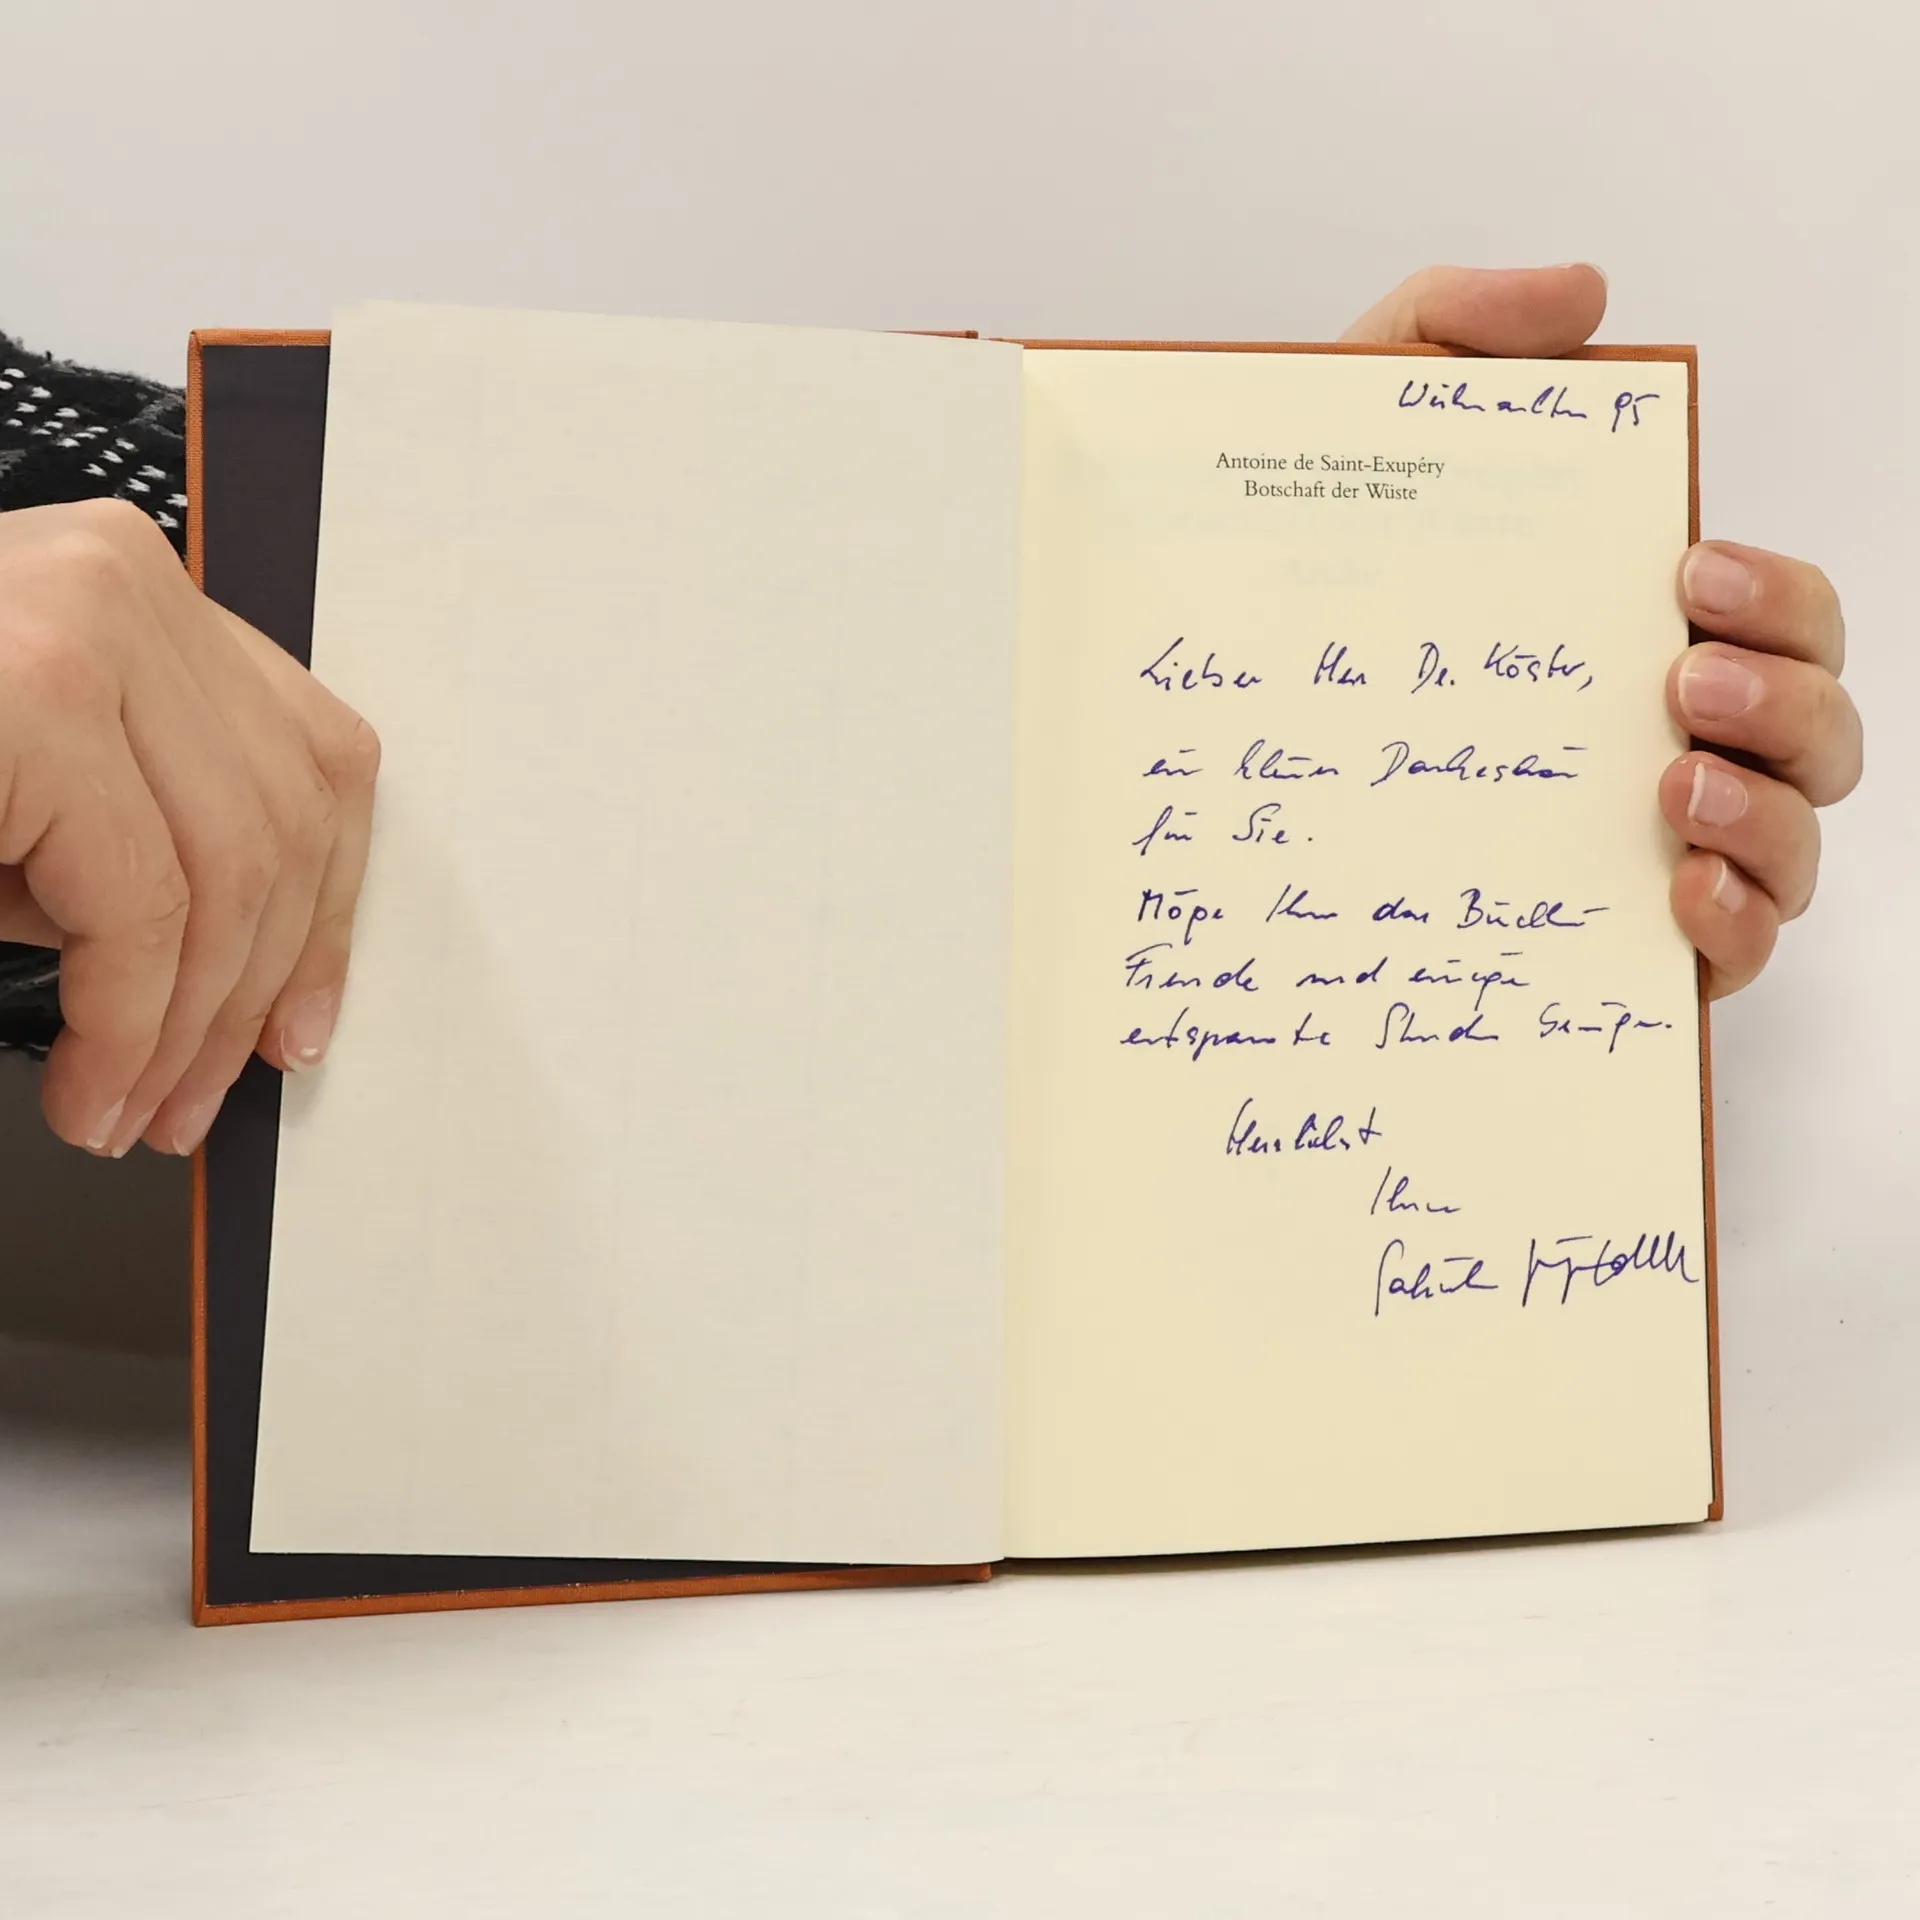 Weihnachten 95
Antoine de Saint-Exupéry
Botschaft der Wüste
Lieber Herr Dr. Köster,
ein kleines Dankeschön
für Sie.
Möge Ihnen das Büchlein
Freude und einige
entspannte Stunden bringen.
Herzlichst
Ihre
Sabine